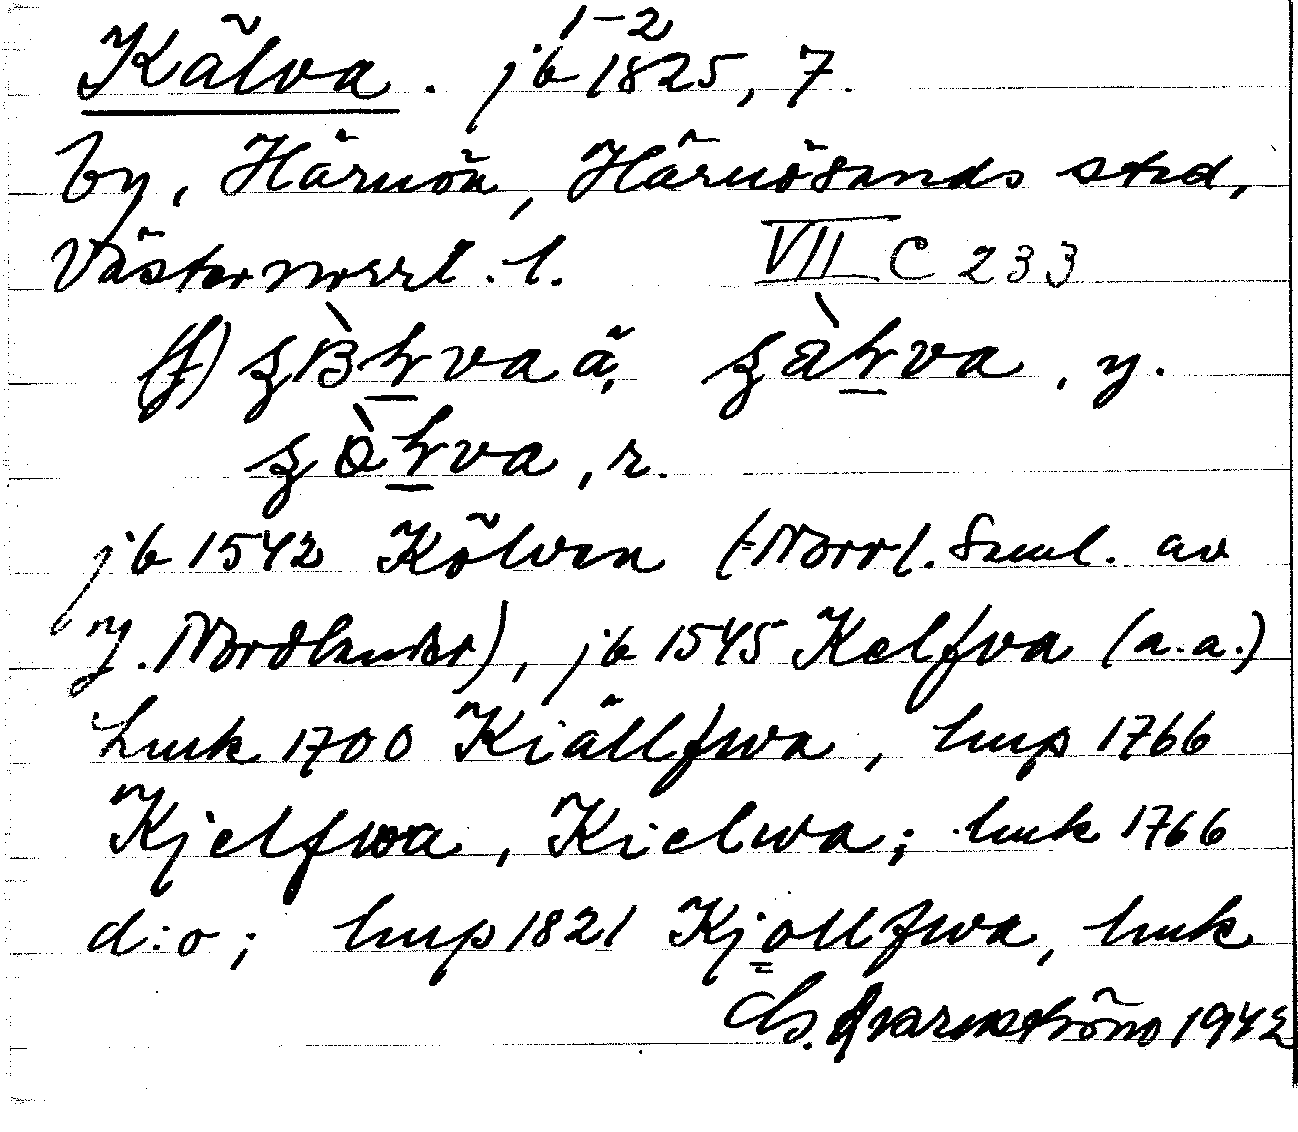 Kälva. jb 1825, 7. 1–2
by, Härnön, Härnösands stad,
Västernorrl. l. VII C 233
(f) va ä, va, y.
va, r.
jb 1542 Kölven (Norrl. Saml. av
J. Nordlander), jb 1545 Kelfva (a.a.)
hmk 1700 Kiällfwa, hmp 1766
Kjelfwa, Kielwa; hmk 1766
d:o; hmp 1821 Kjollfwa, hmk
1942